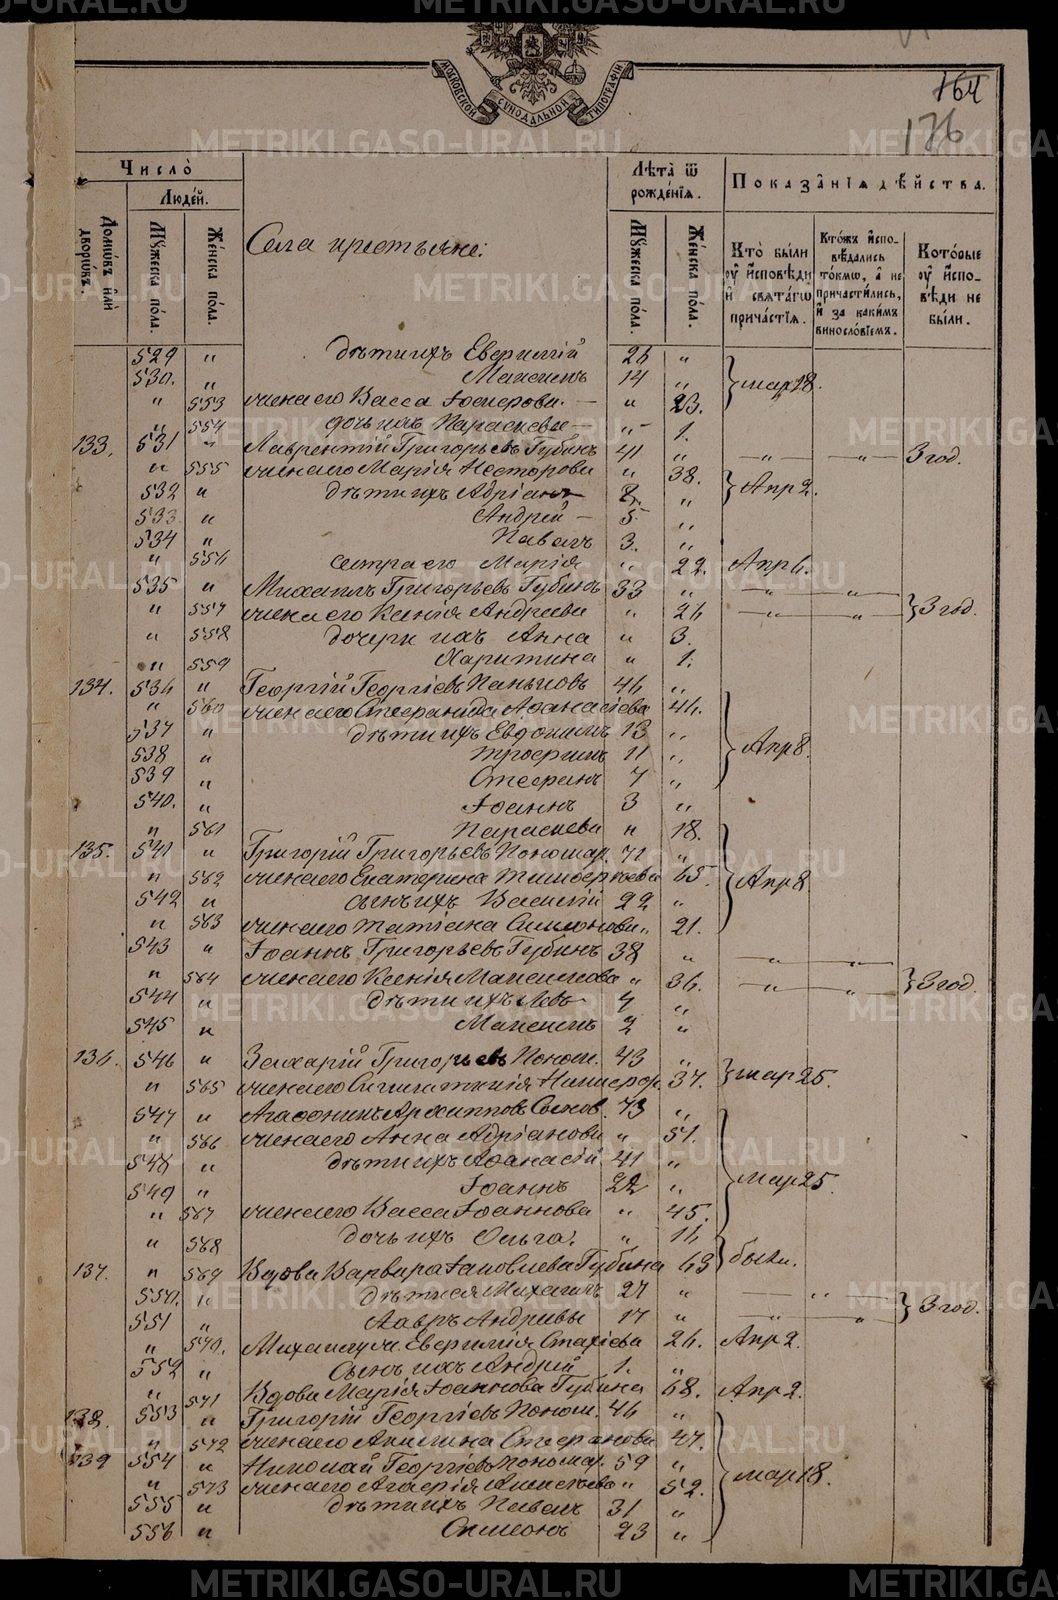 МОСКОВСКОЙ СѴНОДАЛЬНОЙ ТИПОГРАФІИ
164
176
Число̀
Людéй.
Домѡвъ и҆лѝ дворѡвъ.
Мꙋжеска пóла.
Жéнска пóла.
Села крестьяне:
Лѣта̀ ѿ рождéнїѧ.
Мꙋжеска пóла.
Жéнска пóла.
Показа̑нїѧ дѣ́йства.
Кто̀ бы́ли ᲂу҆ и҆сповѣди и҆ свѧта́гѡ прича́стїѧ.
Кто́жъ и҆сповѣдались то́кмѡ, а҆ не причасти́лись, и҆ за каки́мъ винословїемъ.
Кото́рые ᲂу҆ и҆сповѣди не бы́ли.
529 " дѣти ихъ Евфимій 26 " } мар 18.
530. " Максимъ 14 "
" 553 жена его Васса " 23.
" 554 дочь ихъ Параскева " 1.
133. 531 " Лаврентій Григорьевъ Губинъ 41 " — " — — " — 3 год.
" 555 жена его Марія Несторова " 38. } Апр 2.
532 " дѣти ихъ Адріанъ 8. "
533 " Андрей 5 "
534 " Павелъ 3. "
" 556 сестра его Марія " 22. Апр 6.
535 " Михаилъ Григорьевъ Губинъ 33 " — " — — " — } 3 год.
" 557 жена его Ксенія Андреева " 26 — " — — " —
" 558 дочери ихъ Анна " 3.
" 559 Харитина " 1.
134. 536 " Георгій Георгіевъ Паньковъ 46 " } Апр 8.
" 560 жена его Стефанида Аѳанасіева 46.
537 " дѣти ихъ Евдокимъ 13 "
538 " Трофимъ 11 "
539 " Стефанъ 7 "
540. " Іоаннъ 3 "
" 561 Параскева " 18.
135. 541 " Григорій Григорьевъ Пономар. 71 " } Апр 8
" 562 жена его Екатерина Тимофеева 65.
542 " сынъ ихъ Василій 22 "
" 563 жена его Татіана Симеонова " 21.
543 " Іоаннъ Григорьевъ Губинъ 38 " — " — — " — } 3 год.
" 564 жена его Ксенія Максимова " 36. — " — — " —
544 " дѣти ихъ Левъ 4 "
545 " Максимъ 2 "
136. 546 " Захарій Григорьевъ Поном. 43 " } мар 25.
" 565 жена его Никифор. 37.
547 " Агаѳоникъ Архипповъ 73 " } мар 25.
" 566 жена его Анна Адріанова " 51.
548 " дѣти ихъ Аѳанасій 41 "
549 " Іоаннъ 22 "
" 567 жена его Васса Іоаннова " 45.
" 568 дочь ихъ Ольга. " 16 } были.
137. " 569 Вдова Варвара Іаковлева Губина 63
550. " дѣти ея Михаилъ 27 " — " — } 3 год.
551 " Лавръ Андреевы 17 " — " — — " —
" 570. Михаила ж. Евфимія 26. Апр 2.
552 " Сынъ ихъ Андрей 1. "
" 571 Вдова Марія Іоаннова Губина 68. Апр 2.
138. 553 " Григорій Георгіевъ Поном. 46 " } мар 18.
" 572 жена его Акилина Стефанова 47.
139 554 " Николай Георгіевъ Пономар. 59 "
" 573 жена его Алексѣева " 52.
555 " дѣти ихъ Павелъ 31 "
556 " Симеонъ 23 "
METRIKI.GASO-URAL.RU